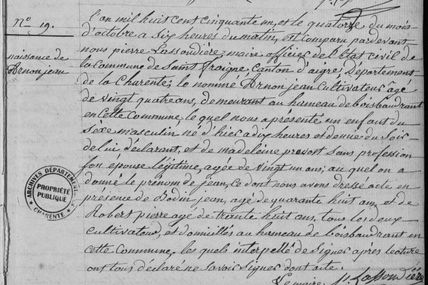 N° 19.
naissance de
Arnon jean
L'an mil huit cent cinquante un, et le quatorze du mois
d'octobre a Six heures du matin, est comparu pardevant
nous pierre Lassoudière, maire officier de l'état civil de
la Commune de Saint fraigne, Canton d'aigre, Département
de la Charente, le nommé Arnon jean Cultivateur, agé
de vingt quatre ans, demeurant au hameau de boisbaudrant
en Cette Commune, le quel nous a présenté un enfant du
Sexe masculin né d'hier a dix heures et demie du Soir
de lui déclarant, et de madeleine prevost sans profession
son épouse légitime, agée de vingt un ans, au quel on a
donné le prénom de jean, Ce dont nous avons dressé acte en
presence de Bodin jean, agé de quarante huit ans, et de
Robert pierre agé de trante huit ans, tous les deux
Cultivateurs, et domiciliés au hameau de boisbaudrant en
cette Commune, les quels interpellés de Signer après lecture
ont tous déclaré ne Savoir Signer dont acte.
Le maire
ARCHIVES DÉPARTEMENTALES
PROPRIÉTÉ
PUBLIQUE
CHARENTE